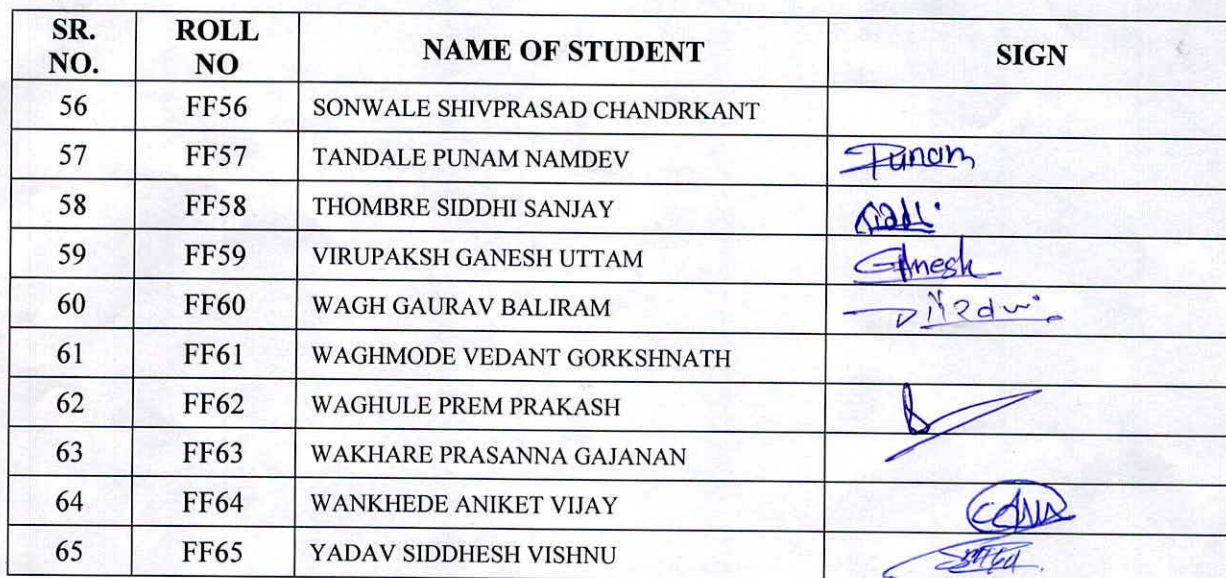 SR. NO. ROLL NO NAME OF STUDENT SIGN
56 FF56 SONWALE SHIVPRASAD CHANDRKANT
57 FF57 TANDALE PUNAM NAMDEV Punam
58 FF58 THOMBRE SIDDHI SANJAY
59 FF59 VIRUPAKSH GANESH UTTAM Ganesh
60 FF60 WAGH GAURAV BALIRAM
61 FF61 WAGHMODE VEDANT GORKSHNATH
62 FF62 WAGHULE PREM PRAKASH
63 FF63 WAKHARE PRASANNA GAJANAN
64 FF64 WANKHEDE ANIKET VIJAY
65 FF65 YADAV SIDDHESH VISHNU